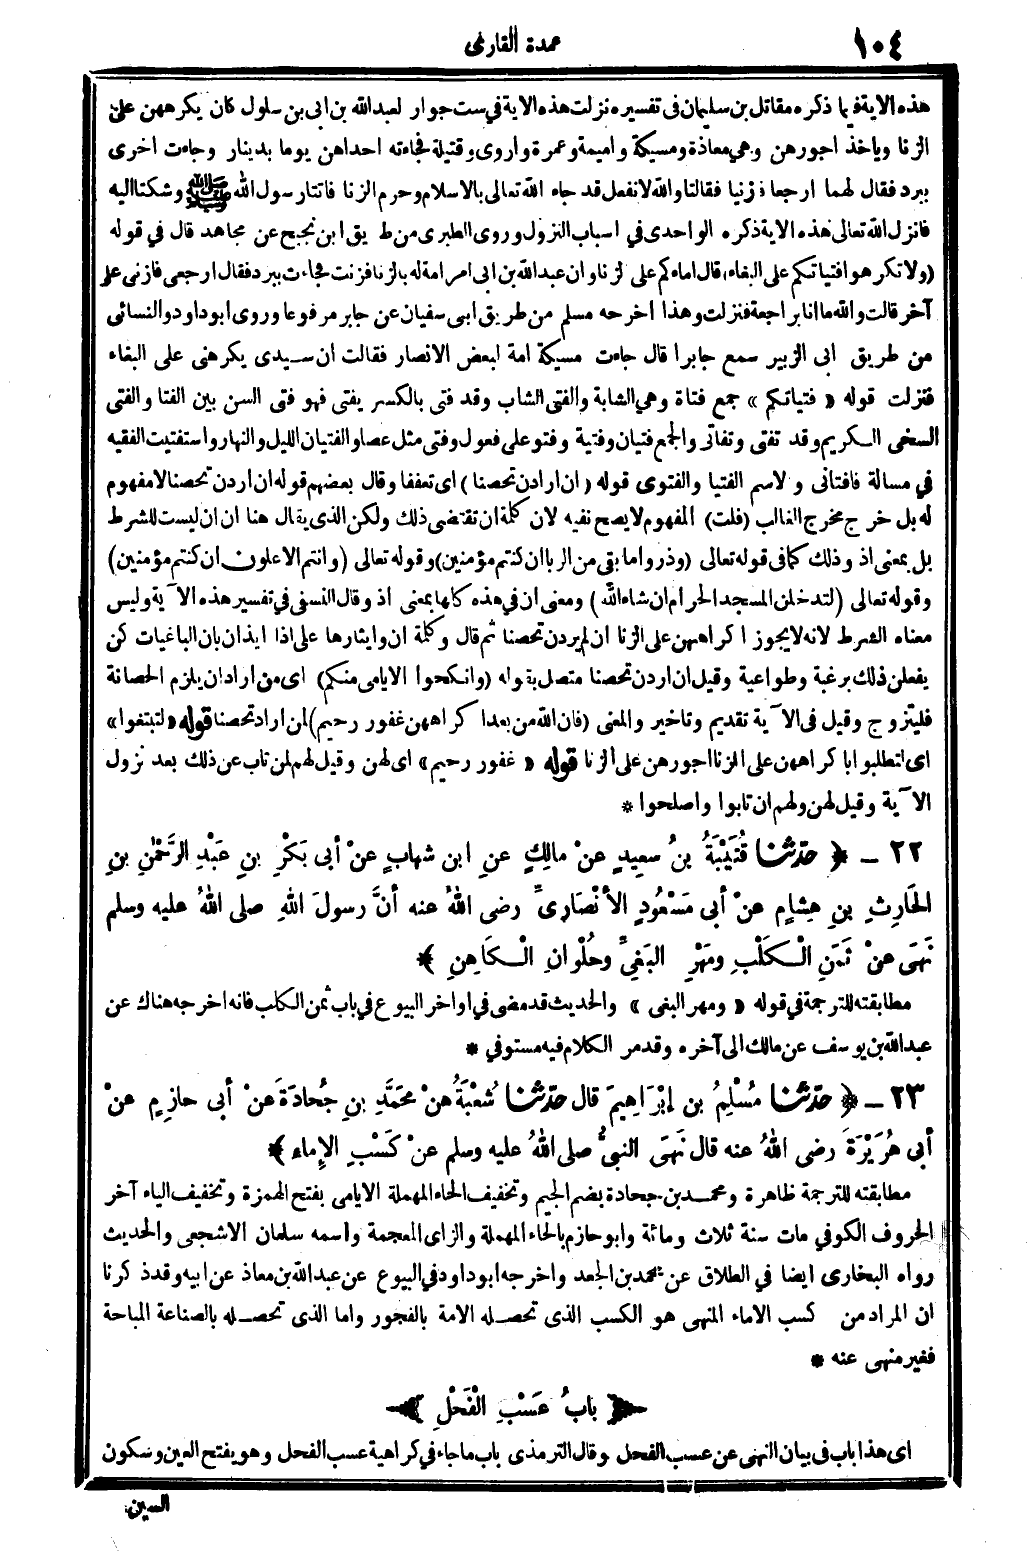 ١٠٤
عمدة القارئ
هذه الآية فيما ذكره مقاتل بن سليمان فى تفسيره نزلت هذه الاية في ست جوار لعبدالله بن ابى بن سلول كان يكرههن على
الزنا وياخذ اجورهن وهي معاذة ومسيكة واميمة وعمرة واروى وقتيلة فجاءته احداهن يوما بدينار وجاءت اخرى
ببرد فقال لهما ارجعا فازنيا فقالتا والله لانفعل قد جاء الله تعالى بالاسلام وحرم الزنا فاتتا رسول الله ﷺ وشكتا اليه
فانزل الله تعالى هذه الاية ذكره الواحدى في اسباب النزول وروى الطبرى من طريق ابن نجيح عن مجاهد قال في قوله
(ولا تكرهوا فتياتكم على البغاء) قال اماءكم على الزنا وان عبدالله بن ابى امر امة له بالزنا فزنت فجاءت ببرد فقال ارجعى فازنى على
آخر قالت والله ما انا براجعة فنزلت وهذا اخرجه مسلم من طريق ابى سفيان عن جابر مرفوعا وروى ابو داود والنسائى
من طريق ابى الزبير سمع جابرا قال جاءت مسيكة امة لبعض الانصار فقالت ان سيدى يكرهنى على البغاء
فنزلت قوله « فتياتكم » جمع فتاة وهي الشابة والفتى الشاب وقد فتى بالكسر يفتى فهو فتى السن بين الفتا والفتى
السخى الكريم وقد تفتى وتفاتى والجمع فتيان وفتية وفتو على فعول وفتى مثل عصا والفتيان الليل والنهار واستفتيت الفقيه
في مسالة فافتانى والاسم الفتيا والفتوى قوله (ان اردن تحصنا) اى تعففا وقال بعضهم قوله ان اردن تحصنا لا مفهوم
له بل خرج مخرج الغالب (قلت) المفهوم لا يصح نفيه لان كلمة ان تقتضى ذلك ولكن الذى يقال هنا ان ان ليست للشرط
بل بمعنى اذ وذلك كما فى قوله تعالى (وذروا ما بقى من الربا ان كنتم مؤمنين) وقوله تعالى (وانتم الاعلون ان كنتم مؤمنين)
وقوله تعالى (لتدخلن المسجد الحرام ان شاء الله) ومعنى ان في هذه كلها بمعنى اذ وقال النسفى في تفسير هذه الآية وليس
معناه الشرط لانه لا يجوز اكراههن على الزنا ان لم يردن تحصنا ثم قال وكلمة ان وايثارها على اذا ايذان بان الباغيات كن
يفعلن ذلك برغبة وطواعية وقيل ان اردن تحصنا متصل بقوله (وانكحوا الايامى منكم) اى من اراد ان يلزم الحصانة
فليتزوج وقيل فى الآية تقديم وتاخير والمعنى (فان الله من بعد اكراههن غفور رحيم) لمن اراد تحصنا قوله «لتبتغوا»
اى لتطلبوا با كراههن على الزنا اجورهن على الزنا قوله « غفور رحيم» اى لهن وقيل لهم لمن تاب عن ذلك بعد نزول
الآية وقيل لهن ولهم ان تابوا واصلحوا *
٢٢ ـ ﴿ حَدَّثَنَا قُتَيْبَةُ بنُ سعِيدٍ عنْ مالِكٍ عنِ ابن شهابٍ عنْ أبى بَكْرِ بنِ عَبْدِ الرَّحْمٰنِ بنِ
الحَارِثِ بنِ هِشامٍ عنْ أبى مَسْعُودٍ الأنْصَارِىِّ رضى اللهُ عنه أنَّ رسولَ اللهِ صلى اللهُ عليه وسلم
نَهَى عنْ ثَمَنِ الْكَلْبِ ومَهْرِ البَغِىِّ وحُلْوانِ الْكاهِنِ ﴾
مطابقته للترجمة في قوله « ومهر البغى » والحديث قد مضى في اواخر البيوع في باب ثمن الكلب فانه اخرجه هناك عن
عبدالله بن يوسف عن مالك الى آخره وقدمر الكلام فيه مستوفي *
٢٣ ـ ﴿ حَدَّثَنَا مُسْلِمُ بن إبْرَاهِيمَ قال حَدَّثَنَا شُعْبَةُ عنْ محَمَّدِ بنِ جُحادَةَ عنْ أبى حازِمٍ عنْ
أبى هُرَيْرَةَ رضى اللهُ عنه قال نَهَى النبىُّ صلى اللهُ عليه وسلم عنْ كَسْبِ الإِماءِ ﴾
مطابقته للترجمة ظاهرة ومحمد بن جحادة بضم الجيم وتخفيف الحاء المهملة الايامى بفتح الهمزة وتخفيف الياء آخر
الحروف الكوفي مات سنة ثلاث ومائة وابو حازم بالحاء المهملة والزاى المعجمة واسمه سلمان الاشجعى والحديث
رواه البخارى ايضا في الطلاق عن محمد بن الجعد واخرجه ابو داود في البيوع عن عبدالله بن معاذ عن ابيه وقد ذكرنا
ان المراد من كسب الاماء المنهى هو الكسب الذى تحصله الامة بالفجور واما الذى تحصله بالصناعة المباحة
فغير منهى عنه *
﴿ بابُ عَسْبِ الْفَحْلِ ﴾
اى هذا باب فى بيان النهى عن عسب الفحل وقال الترمذى باب ما جاء في كراهية عسب الفحل وهو بفتح العين وسكون
السين